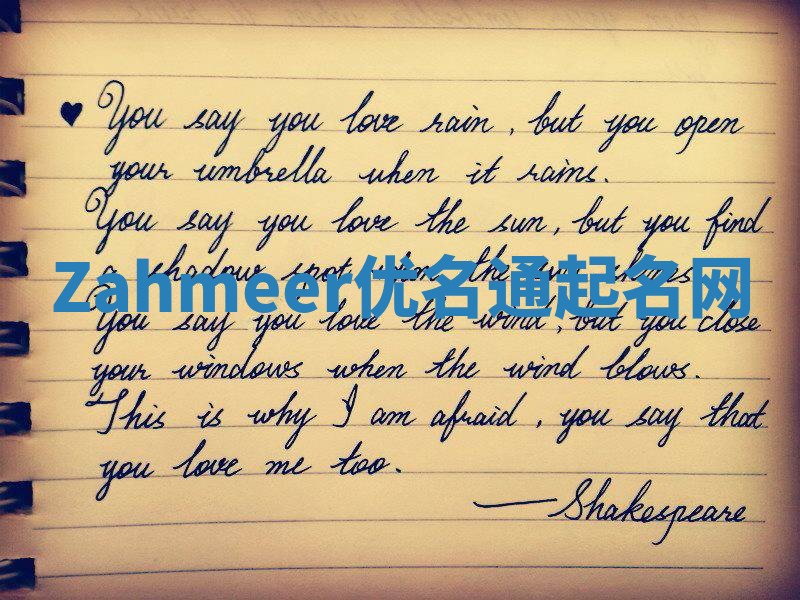 ♥ You say you love rain, but you open
your umbrella when it rains.
You say you love the sun, but you find
a shadow spot when the sun shines.
Zahmeer优名通起名网
You say you love the wind, but you close
your windows when the wind blows.
This is why I am afraid, you say that
you love me too.
—Shakespeare